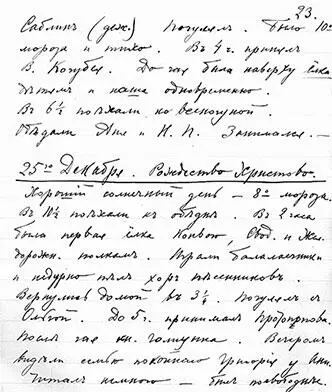 23.
Саблинъ (деж.) Погулялъ. Было 10°
мороза и тихо. Въ 4 ч. принялъ
В. Кочубея. До чая была наверху ёлка
дѣтямъ и наша одновременно.
Въ 6½ поѣхали ко всенощной.
Обѣдали Аня и Н. П. Занимался. —
25го Декабря. Рождество Христово.
Хорошій солнечный день — 8° мороза.
Въ 10½ поѣхали къ обѣднѣ. Въ 2 часа
была первая ёлка Конвою, Свод. и Жел.
дорожн. полкамъ. Играли балалаечники
и недурно пѣлъ хоръ пѣсенниковъ.
Вернулись домой въ 3½. Погулялъ съ
Ольгой. До 5 ч. принималъ Протопопова.
Послѣ чая кн. Голицына. Вечеромъ
видѣли семью покойнаго Григорія у Ани.
Читалъ немного —